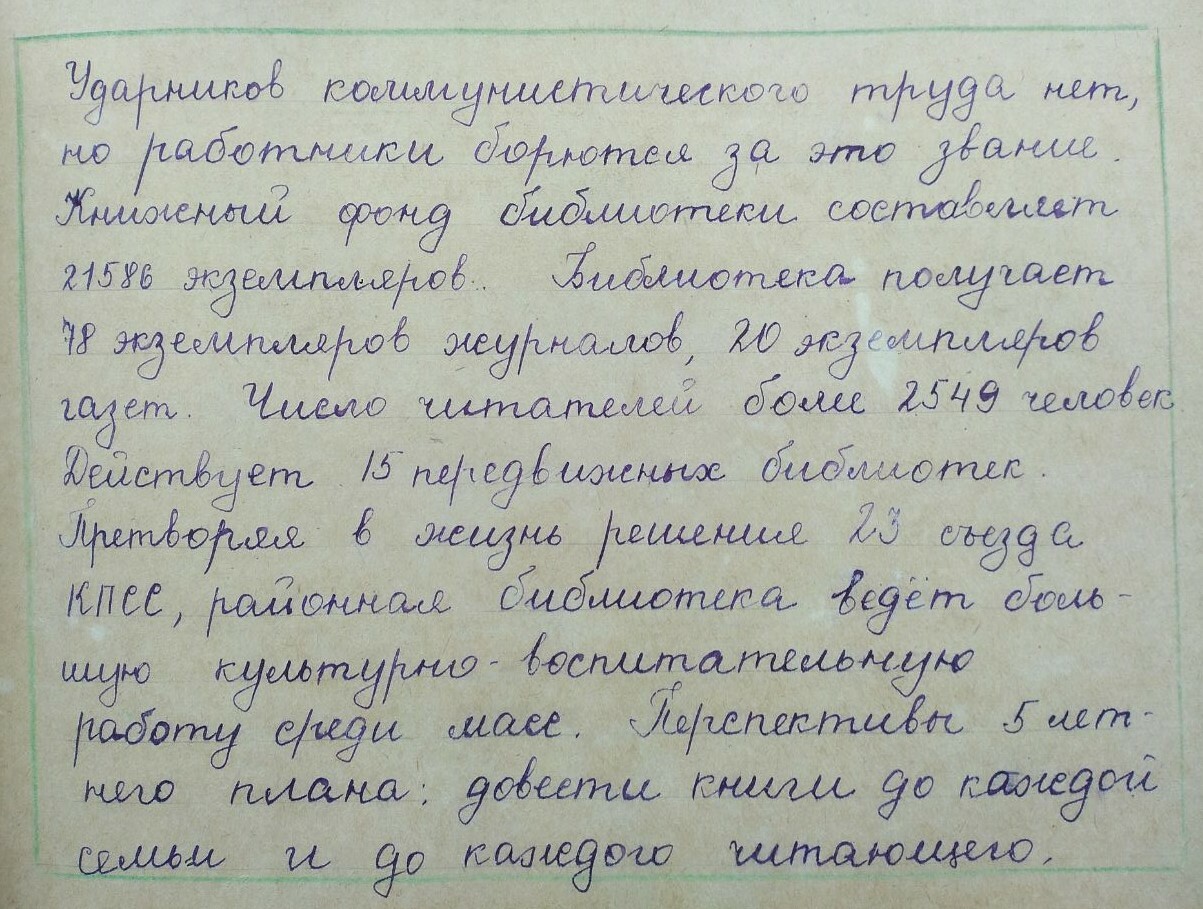 Ударников коммунистического труда нет,
но работники борются за это звание.
Книжный фонд библиотеки составляет
21586 экземпляров. Библиотека получает
78 экземпляров журналов, 20 экземпляров
газет. Число читателей более 2549 человек
Действует 15 передвижных библиотек.
Претворяя в жизнь решения 23 съезда
КПСС, районная библиотека ведёт боль-
шую культурно-воспитательную
работу среди масс. Перспективы 5 лет-
него плана: довести книги до каждой
семьи и до каждого читающего.